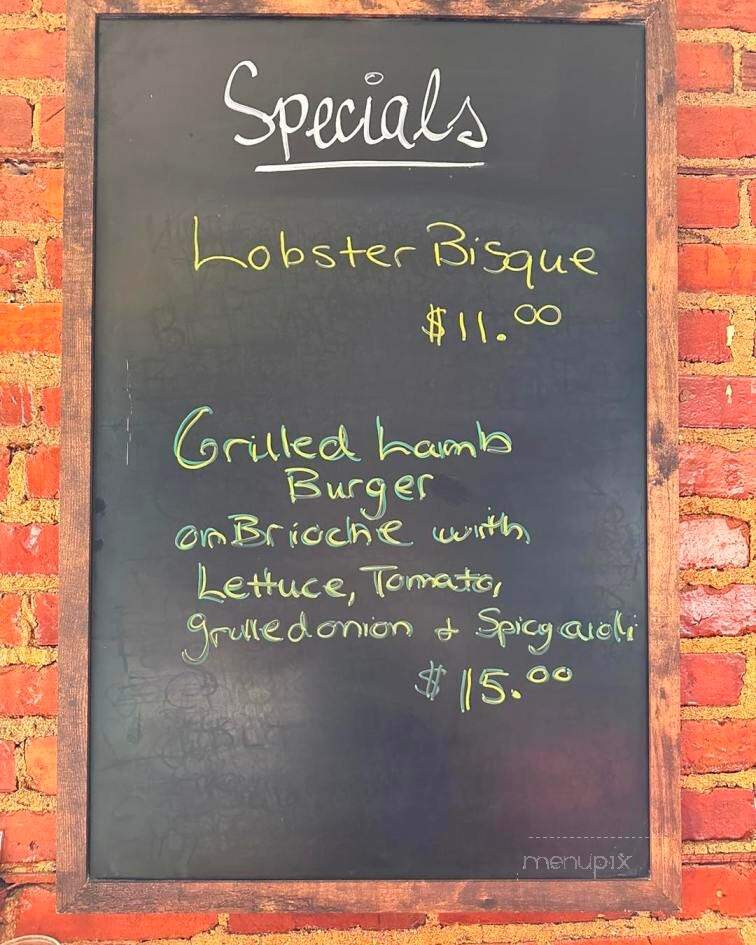 Specials
Lobster Bisque
$11.00
Grilled Lamb
Burger
on Brioche with
Lettuce, Tomato,
grilled onion & Spicy aioli
$15.00
menupix